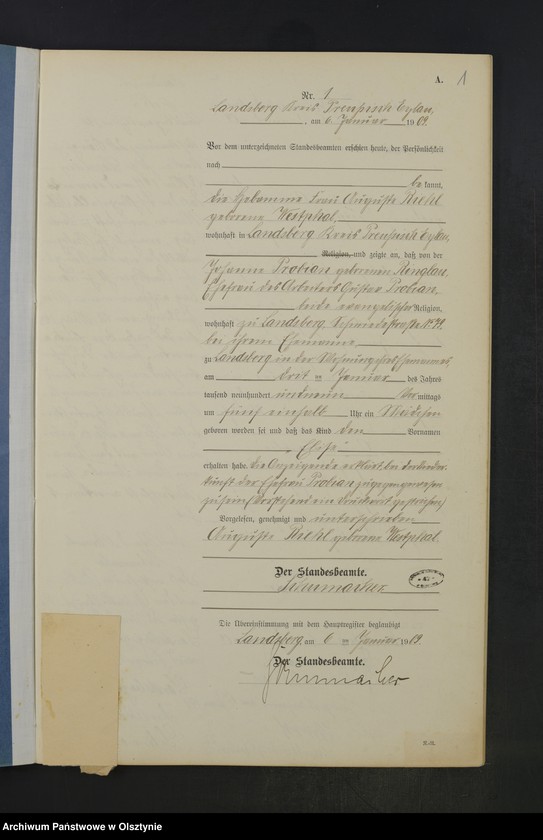 A. 1
Nr. 1
Landsberg Kreis Preußisch Eylau,
, am 6. Januar 1909.
Vor dem unterzeichneten Standesbeamten erschien heute, der Persönlichkeit
nach
be kannt,
die Hebamme Frau Auguste Riehl
geborene Westphal,
wohnhaft in Landsberg Kreis Preußisch Eylau,
Religion, und zeigte an, daß von der
Johanne Probian geborenen Renglau,
Ehefrau des Arbeiters Gustav Probian,
beide evangelischer Religion,
wohnhaft zu Landsberg, Schmiedestraße No
bei ihrem Ehemanne,
zu Landsberg in der Wohnung ihres Ehemannes
am drei ten Januar des Jahres
tausend neunhundert und neun Vor mittags
um fünf einhalb Uhr ein Mädchen
geboren worden sei und daß das Kind den Vornamen
Elise
erhalten habe. Die Anzeigende erklärt, bei der Nieder-
kunft der Ehefrau Probian zugegen gewesen
zu sein. (Vorstehend ein Druckwort gestrichen)
Vorgelesen, genehmigt und unterschrieben
Auguste Riehl geborene Westphal.
Der Standesbeamte.
Schumacher
Die Übereinstimmung mit dem Hauptregister beglaubigt
Landsberg, am 6 ten Januar 1909.
Der Standesbeamte.
Schumacher
Archiwum Państwowe w Olsztynie